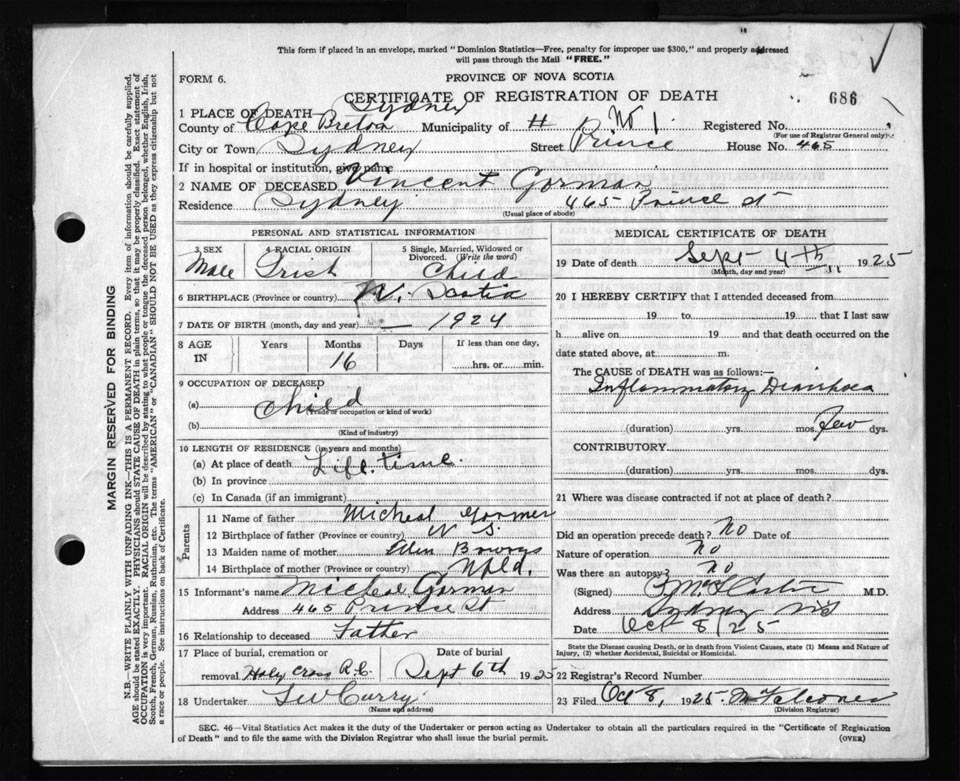 This form if placed in an envelope, marked "Dominion Statistics—Free, penalty for improper use $300," and properly addressed
will pass through the Mail "FREE."
FORM 6.
PROVINCE OF NOVA SCOTIA
CERTIFICATE OF REGISTRATION OF DEATH
686
1 PLACE OF DEATH Sydney
County of Cape Breton Municipality of # W 1. Registered No.
(For use of Registrar General only)
City or Town Sydney Street Prince House No. 465
If in hospital or institution, give name
2 NAME OF DECEASED Vincent Gorman
Residence Sydney 465 Prince St
(Usual place of abode)
PERSONAL AND STATISTICAL INFORMATION
3 SEX 4 RACIAL ORIGIN 5 Single, Married, Widowed or Divorced. (Write the word)
Male Irish Child
6 BIRTHPLACE (Province or country) N. Scotia
7 DATE OF BIRTH (month, day and year) — 1924
8 AGE IN Years Months Days If less than one day,
16 hrs. or min.
9 OCCUPATION OF DECEASED
(a) Child
(Trade or occupation or kind of work)
(b)
(Kind of industry)
10 LENGTH OF RESIDENCE (in years and months)
(a) At place of death Life time.
(b) In province
(c) In Canada (if an immigrant)
Parents
11 Name of father Micheal Gorman
12 Birthplace of father (Province or country) N S.
13 Maiden name of mother
14 Birthplace of mother (Province or country) Nfld.
15 Informant's name Micheal Gorman
Address 465 Prince St
16 Relationship to deceased Father
17 Place of burial, cremation or Date of burial
removal Holy Cross R.C. Sept 6th 1925
18 Undertaker Curry
(Name and address)
MEDICAL CERTIFICATE OF DEATH
19 Date of death Sept 4th 1925
(Month, day and year)
20 I HEREBY CERTIFY that I attended deceased from
19 to 19 that I last saw
h alive on 19 and that death occurred on the
date stated above, at m.
The CAUSE of DEATH was as follows:—
Inflammatory Diarrhoea
(duration) yrs. mos. few dys.
CONTRIBUTORY
(duration) yrs. mos. dys.
21 Where was disease contracted if not at place of death?
Did an operation precede death? No Date of
Nature of operation No
Was there an autopsy? No
(Signed) M.D.
Address Sydney NS
Date Oct 8/25
State the Disease causing Death, or in death from Violent Causes, state (1) Means and Nature of
Injury, (2) whether Accidental, Suicidal or Homicidal.
22 Registrar's Record Number
23 Filed Oct 8, 1925.
(Division Registrar)
SEC. 46—Vital Statistics Act makes it the duty of the Undertaker or person acting as Undertaker to obtain all the particulars required in the "Certificate of Registration
of Death" and to file the same with the Division Registrar who shall issue the burial permit. (OVER)
MARGIN RESERVED FOR BINDING
N.B.—WRITE PLAINLY WITH UNFADING INK—THIS IS A PERMANENT RECORD. Every item of information should be carefully supplied.
AGE should be stated EXACTLY. PHYSICIANS should STATE CAUSE OF DEATH in plain terms, so that it may be properly classified. Exact statement of
OCCUPATION is very important. RACIAL ORIGIN will be described by stating to what people or tongue the deceased person belonged, whether English, Irish,
Scotch, French, German, Russian, Ruthenian, etc. The terms "AMERICAN" or "CANADIAN" SHOULD NOT BE USED as they express citizenship but not
a race or people. See instructions on back of Certificate.